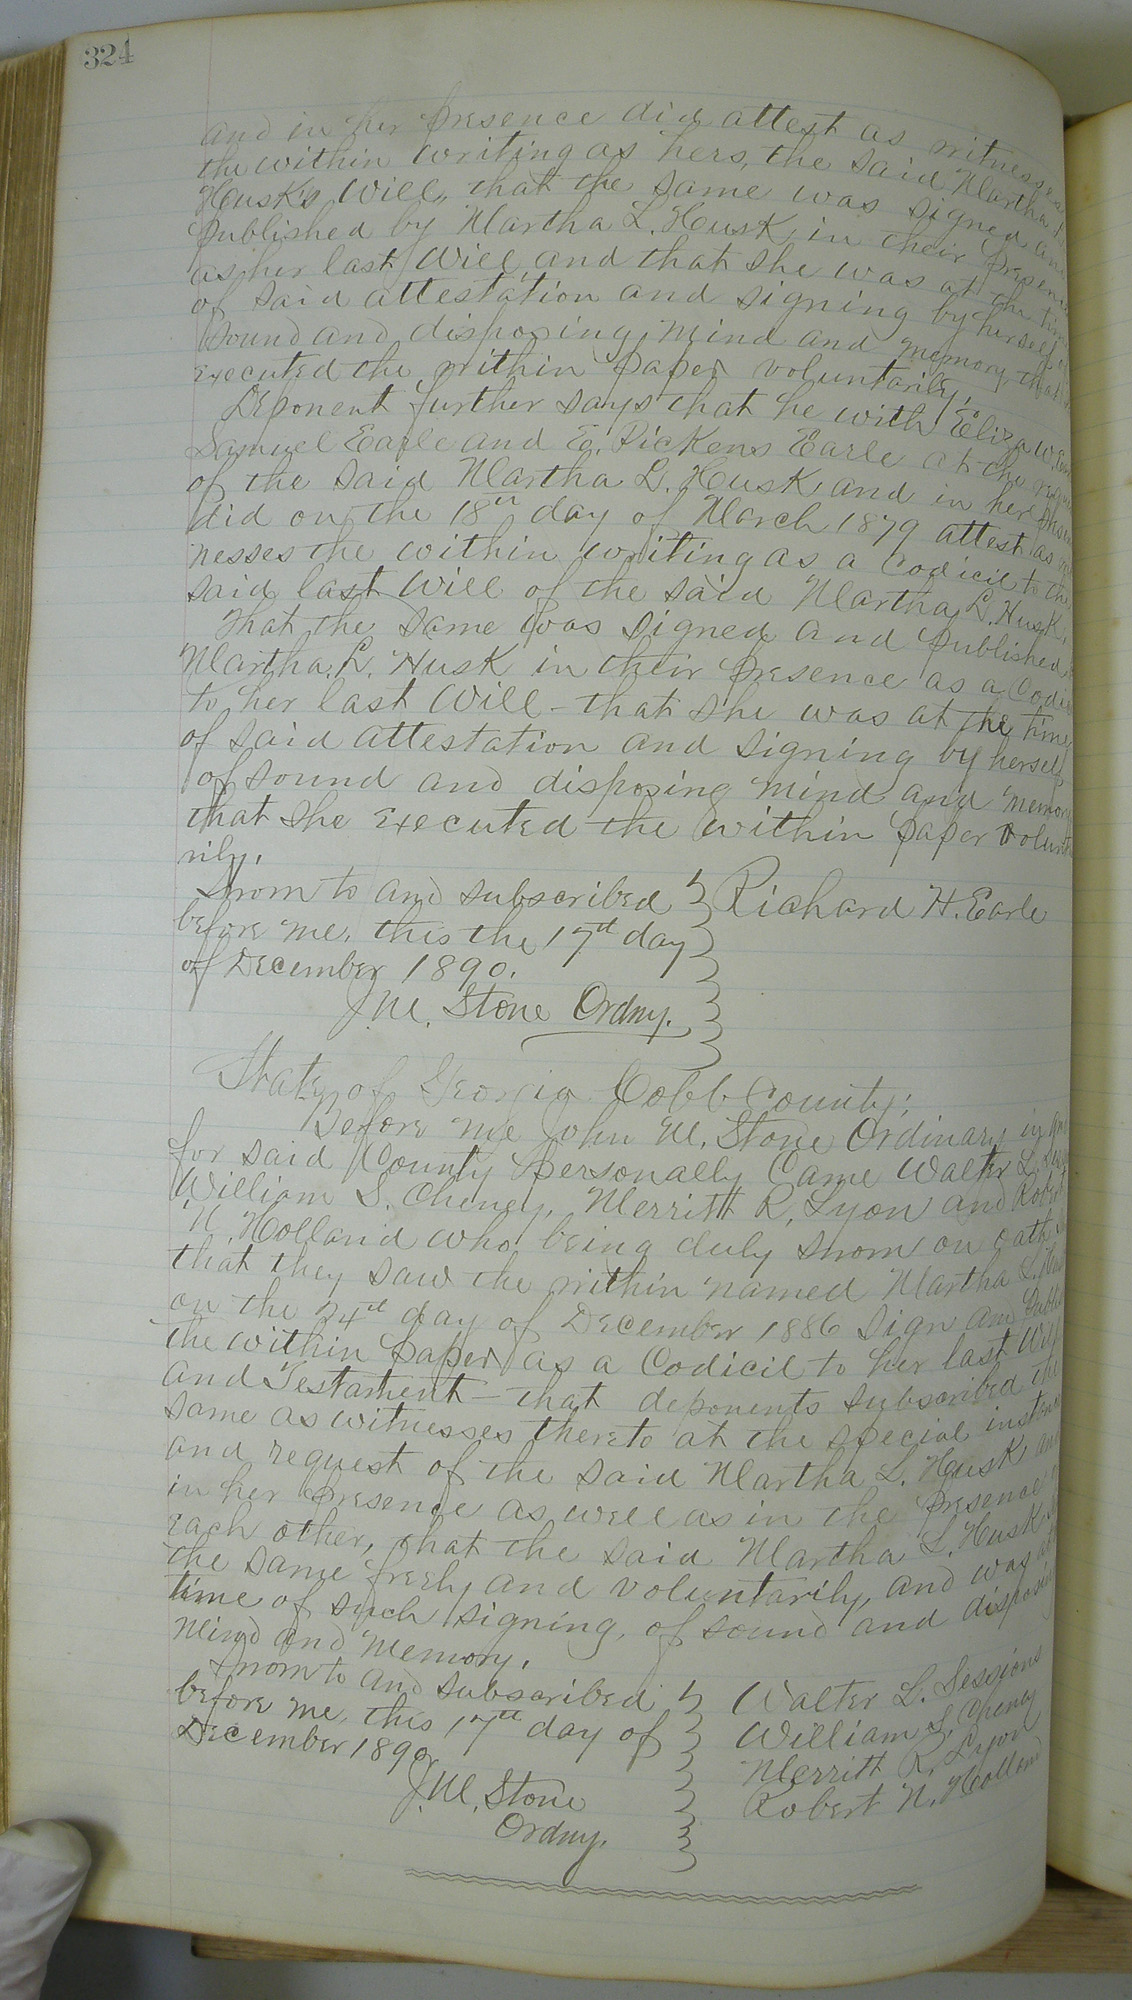 324
and in her presence did attest as witnesses
the within writing as hers, the said Martha
Husk's Will, that the same was signed and
published by Martha L. Husk in their presence
as her last Will, and that she was at the time
of said attestation and signing by herself of
sound and disposing mind and memory, that
executed the within paper voluntarily.
Deponent further says that he with Eliza W.
Samuel Earle and E. Pickens Earle at the
of the said Martha L. Husk and in her
did on the 18th day of March 1879 attest as
nesses the within writing as a Codicil to the
said last Will of the said Martha L. Husk.
That the same was signed and published
Martha L. Husk in their presence as a Codi
to her last Will - that she was at the time
of said attestation and signing by herself
of sound and disposing mind and memory
that she executed the within paper volunt
rily.
Sworn to and subscribed Richard H. Earle
before me, this the 17th day
of December 1890.
J.M. Stone Ordny.
State of Georgia Cobb County;
Before me John M. Stone Ordinary in
for said County personally Came Walter L.
William S. Cheney, Merritt R. Lyon and Robert
N. Holland who being duly sworn on oath
that they saw the within named Martha L.
on the 24th day of December 1886 Sign and
the within paper as a Codicil to her last Will
and Testament - that deponents subscribed the
same as witnesses thereto at the special instan
and request of the said Martha L. Husk and
in her presence as well as in the presence
each other, that the said Martha L. Husk
the same freely and voluntarily, and was
time of such signing, of sound and disposin
Mind and Memory.
Sworn to and subscribed Walter L. Sessions
before me, this 17th day of William S. Cheney
December 1890 Merritt R. Lyon
J.M. Stone Robert N. Holland
Ordny.